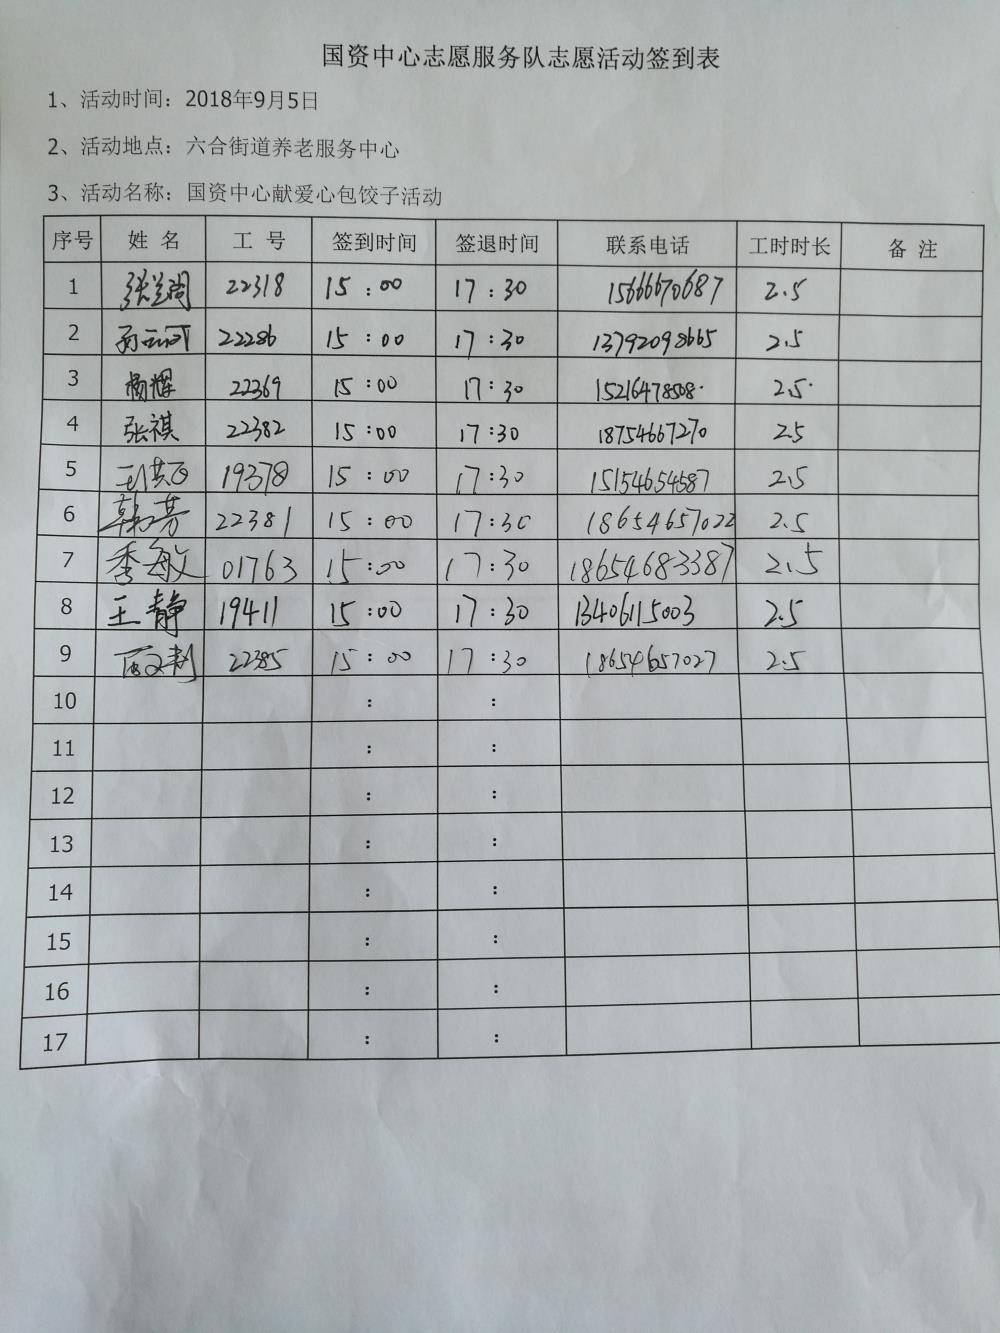 国资中心志愿服务队志愿活动签到表
1、活动时间：2018年9月5日
2、活动地点：六合街道养老服务中心
3、活动名称：国资中心献爱心包饺子活动
序号 姓 名 工 号 签到时间 签退时间 联系电话 工时时长 备 注
1 22318 15：00 17：30 15666670687 2.5
2 22286 15：00 17：30 13792098665 2.5
3 杨辉 22369 15：00 17：30 15216478508 2.5
4 张祺 22382 15：00 17:30 18754667270 2.5
5 19378 15：00 17:30 15154654587 2.5
6 韩芳 22381 15：00 17:30 18654657022 2.5
7 季敏 01763 15:00 17:30 18654683387 2.5
8 王静 19411 15:00 17:30 13406115003 2.5
9 22385 15：00 17：30 18654657027 2.5
10 ： ：
11 ： ：
12 ： ：
13 ： ：
14 ： ：
15 ： ：
16 ： ：
17 ： ：